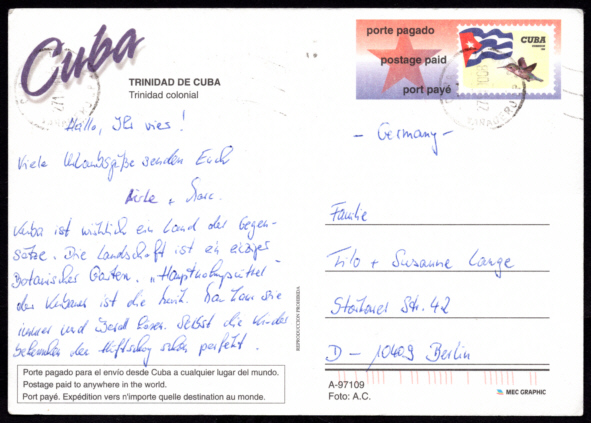 Cuba
TRINIDAD DE CUBA
Trinidad colonial
Hallo, Ihr vier!
Viele Urlaubsgrüße senden Euch
+
Kuba ist wirklich ein Land der Gegen-
sätze. Die Landschaft ist ein einziger
Botanischer Garten. „Hauptnahrungsmittel"
der Kubaner ist die Musik. Da kann sie
immer und überall hören. Selbst die Kinder
den Hüftschwung schon perfekt.
Porte pagado para el envío desde Cuba a cualquier lugar del mundo.
Postage paid to anywhere in the world.
Port payé. Expédition vers n'importe quelle destination au monde.
REPRODUCCION PROHIBIDA
porte pagado
postage paid
port payé
CUBA
- Germany -
Familie
Tilo + Susanne Lange
Str. 42
D - 10409 Berlin
A-97109
Foto: A.C.
MEC GRAPHIC